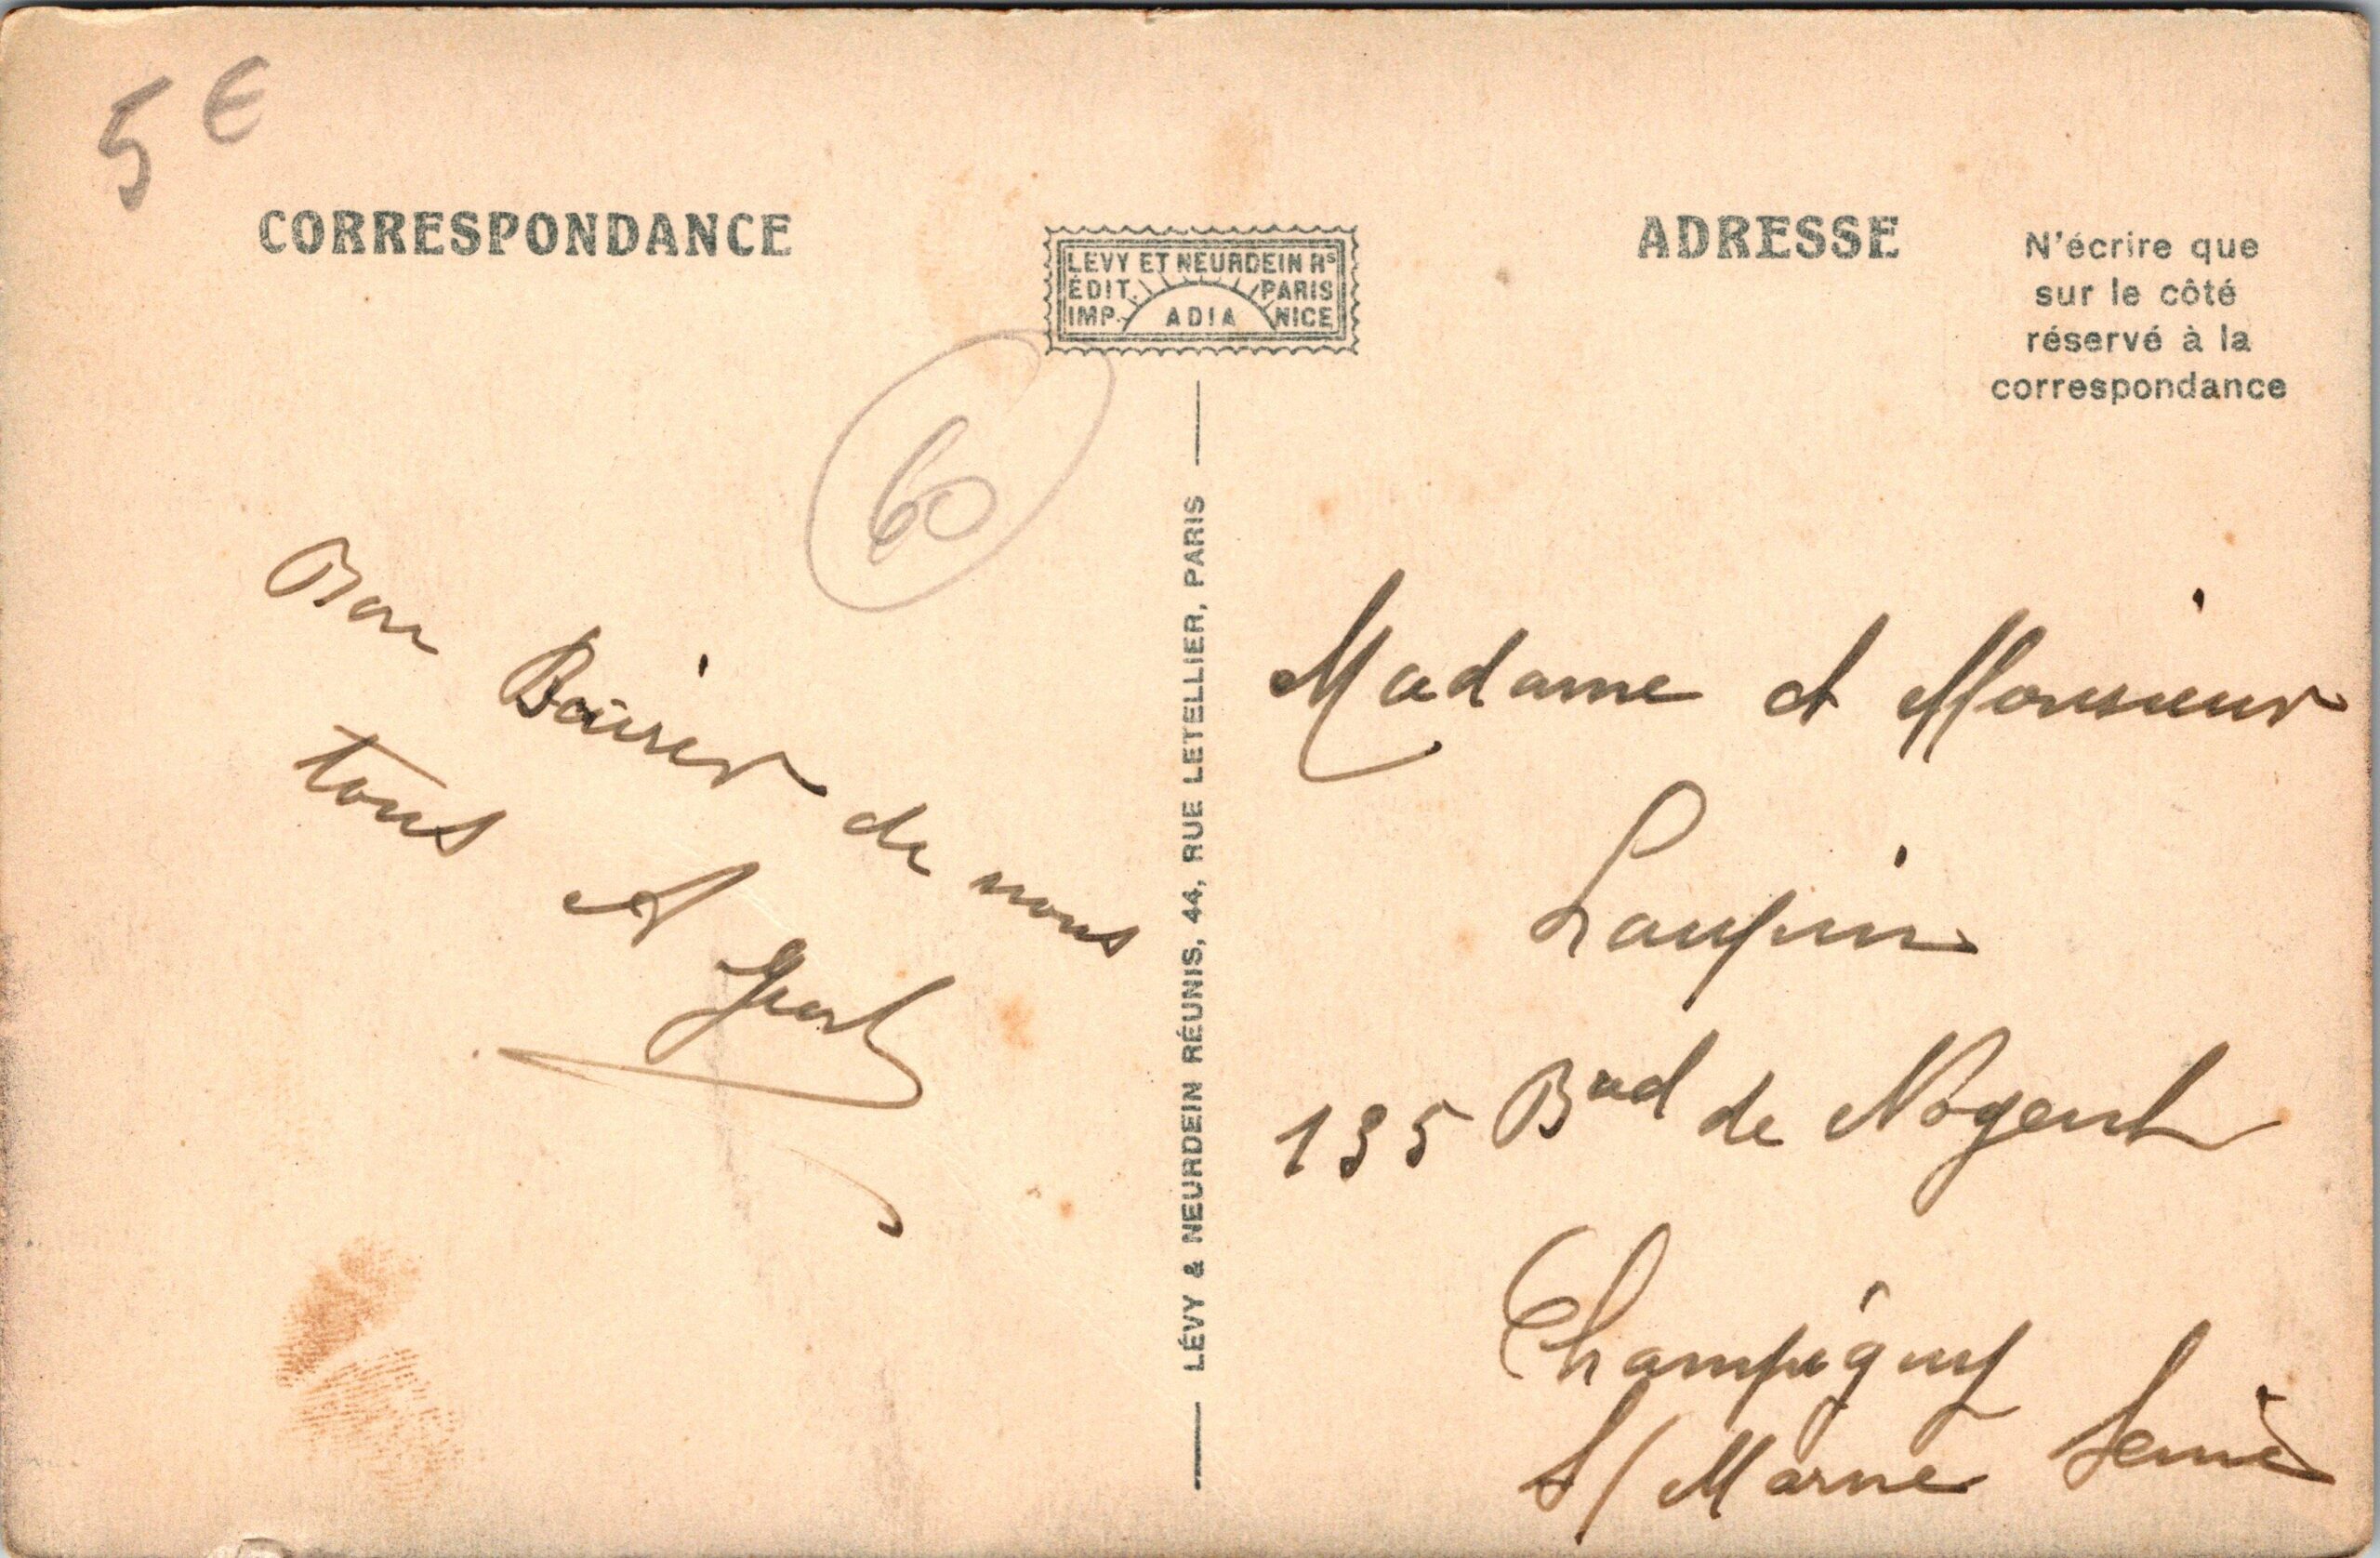 5 €
CORRESPONDANCE
LEVY ET NEURDEIN Rs
ÉDIT. PARIS
IMP. ADIA NICE
ADRESSE
N'écrire que
sur le côté
réservé à la
correspondance
60
Bon Baiser de nous
tous
LÉVY & NEURDEIN RÉUNIS, 44, RUE LETELLIER, PARIS
Madame et Monsieur
Laupin
135 Bvd de Nogent
Champigny
S/ Marne Seine